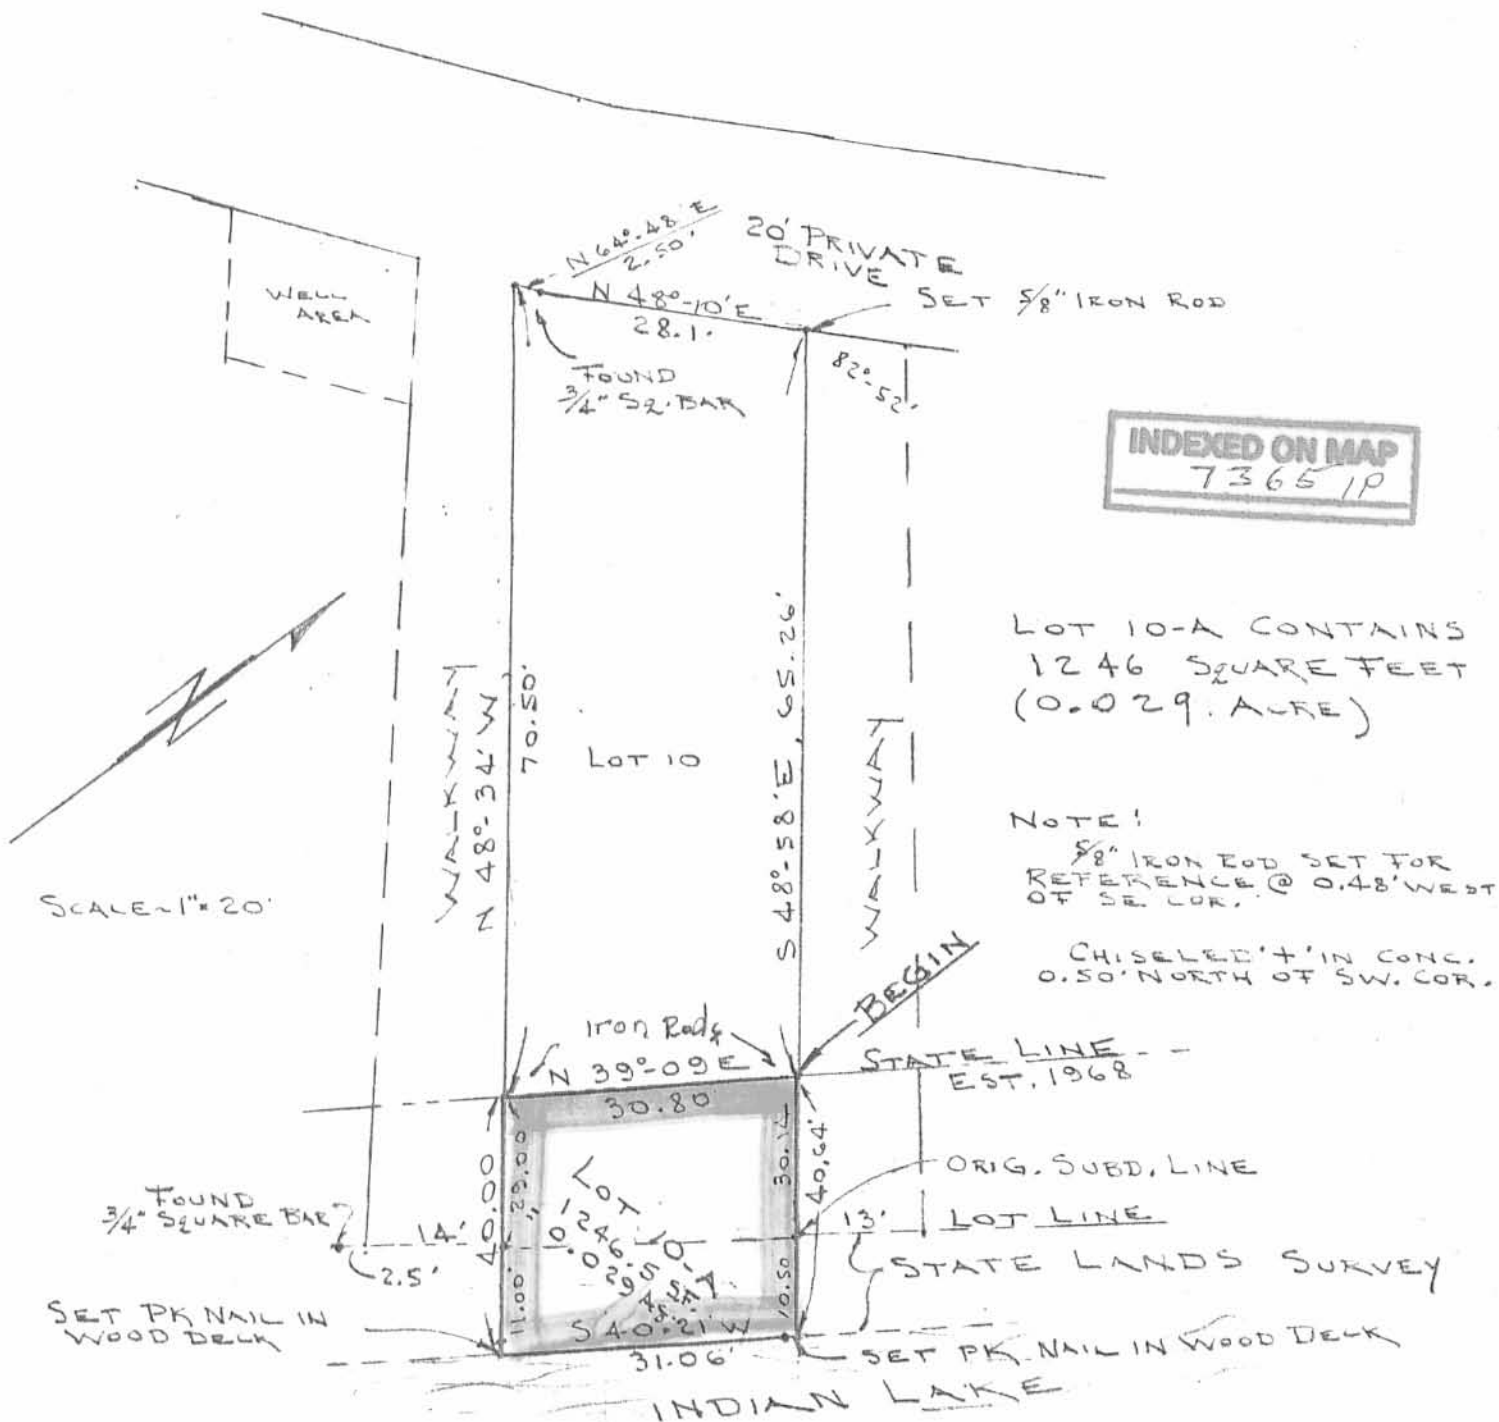 N 64°-48' E
2.50'
20' PRIVATE
DRIVE
N 48°-10' E
28.1.
SET 5/8" IRON ROD
WELL
AREA
FOUND
3/4" SQ. BAR
82°-52'
INDEXED ON MAP
7365 IP
LOT 10-A CONTAINS
1246 SQUARE FEET
(0.029. ACRE)
WALKWAY
N 48°-34' W
70.50'
LOT 10
S 48°-58' E, 65.26'
WALKWAY
NOTE!
5/8" IRON ROD SET FOR
REFERENCE @ 0.48' WEST
OF SE. COR.
CHISELED '+' IN CONC.
0.50' NORTH OF SW. COR.
SCALE~1"=20'
BEGIN
Iron Rods
N 39°-09 E
30.80
STATE LINE
EST. 1968
40.00
29.00
11.00'
30.14
40.64'
10.50
LOT 10-A
1246.5 SF.
0.029 AC.
ORIG. SUBD. LINE
FOUND
3/4" SQUARE BAR
14'
2.5'
13'
LOT LINE
STATE LANDS SURVEY
SET PK NAIL IN
WOOD DECK
S 40°-21' W
31.06'
SET PK NAIL IN WOOD DECK
INDIAN LAKE